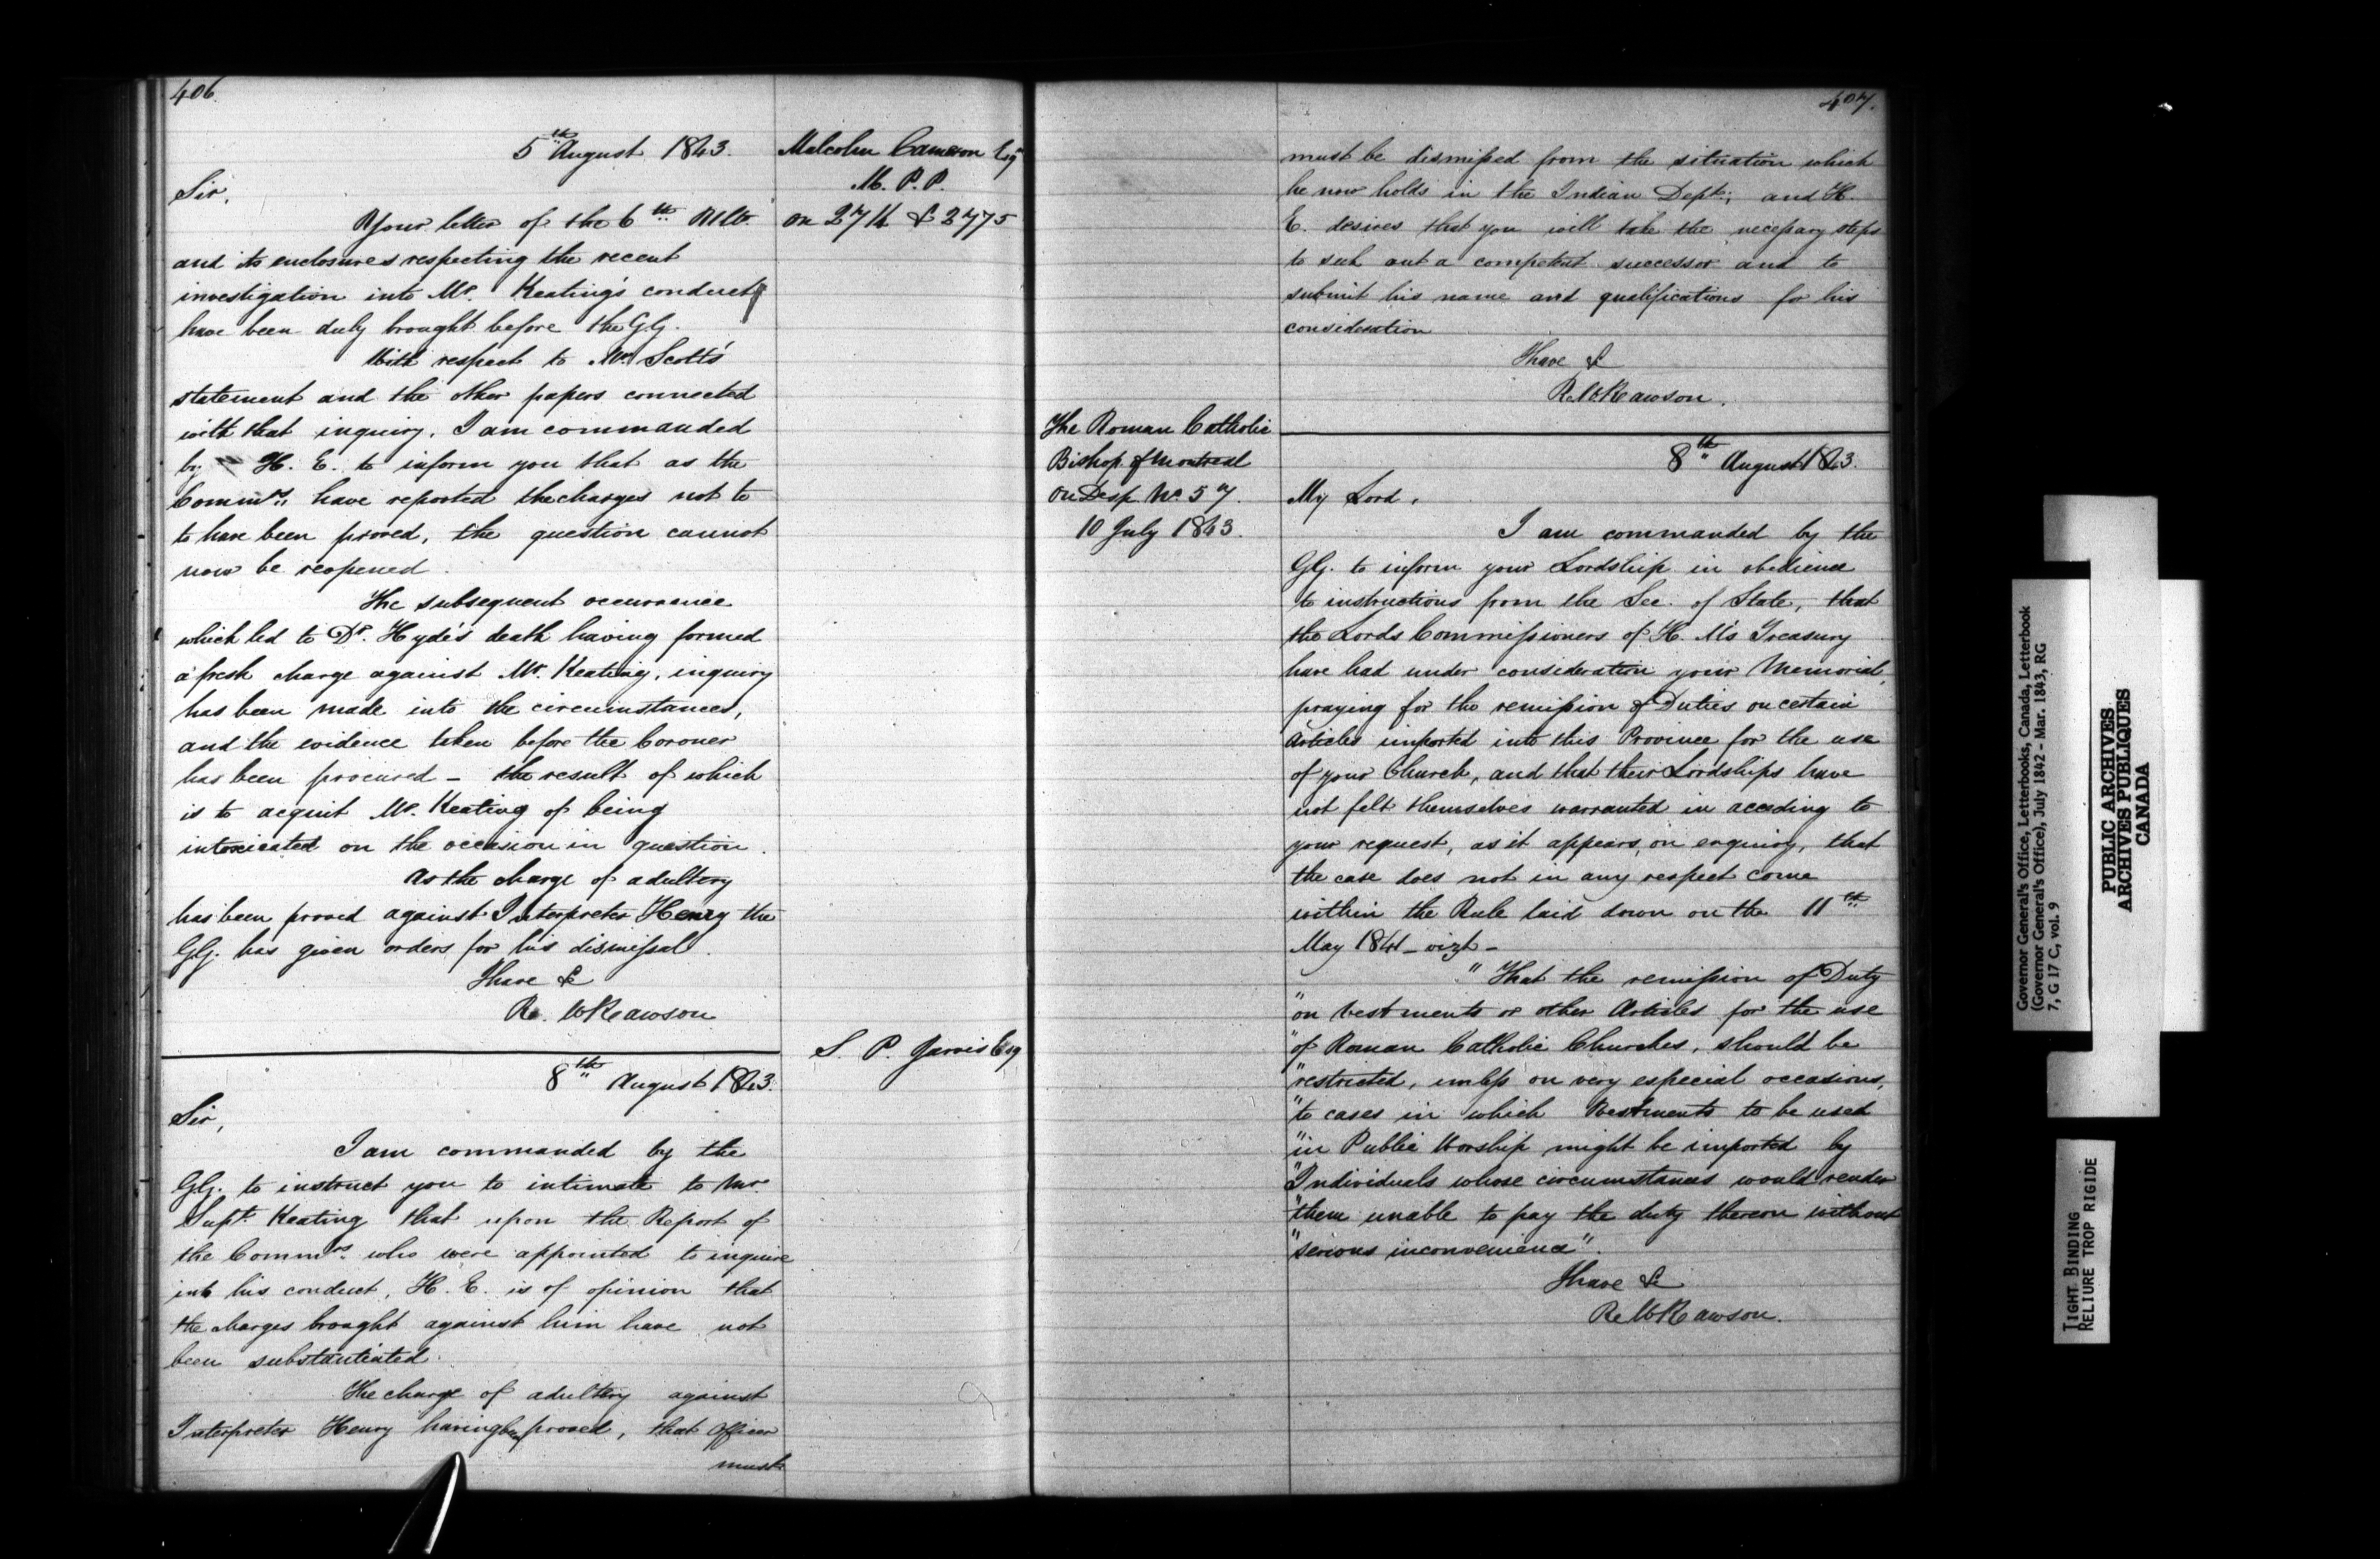 406.
5th August 1843.
Sir,
Your letter of the 6th Ulto.
and its enclosures respecting the recent
investigation into Mr. Keating's conduct
have been duly brought before the GG.
With respect to Mr. Scott's
statement and the other papers connected
with that inquiry, I am commanded
by H. E. to inform you that as the
Commrs. have reported the charges not to
to have been proved, the question cannot
now be reopened.
The subsequent occurrence
which led to Dr. Hyde's death having formed
a fresh charge against Mr. Keating, inquiry
has been made into the circumstances,
and the evidence taken before the Coroner
has been procured - the result of which
is to acquit Mr. Keating of being
intoxicated on the occasion in question.
As the charge of adultery
has been proved against Interpreter Henry the
GG. has given orders for his dismissal.
I have &
R. W Rawson
8th August 1843.
Sir,
I am commanded by the
GG. to instruct you to intimate to Mr.
Supt. Keating that upon the Report of
the Commrs. who were appointed to inquire
into his conduct, H. E. is of opinion that
the charges brought against him have not
been substantiated.
The charge of adultery against
Interpreter Henry having been proved, that Officer
must
Malcolm Cameron Esqr
M. P. P.
on & 2775
S. P. Jarvis Esq
407.
must be dismissed from the situation which
he now holds in the Indian Dept.; and H.
E. desires that you will take the necessary steps
to seek out a competent successor and to
submit his name and qualifications for his
consideration
I have &
R. W Rawson.
The Roman Catholic
Bishop of Montreal
on Desp. No. 57.
10 July 1843.
8th August 1843.
My Lord,
I am commanded by the
GG. to inform your Lordship in obedience
to instructions from the Sec. of State, that
the Lords Commissioners of H. M's Treasury
have had under consideration your Memorial,
praying for the remission of Duties on certain
Articles imported into this Province for the use
of your Church, and that their Lordships have
not felt themselves warranted in acceding to
your request, as it appears, on enquiry, that
the case does not in any respect come
within the Rule laid down on the 11th
May 1841 - vizt -
"That the remission of Duty
"on vestments or other Articles for the use
"of Roman Catholic Churches, should be
"restricted, unless on very especial occasions,
"to cases in which Vestments to be used
"in Public Worship might be imported by
"Individuals whose circumstances would render
"them unable to pay the duty thereon without
"serious inconvenience".
I have &
R W Rawson.
Governor General's Office, Letterbooks, Canada, Letterbook
(Governor General's Office), July 1842 - Mar. 1843, RG
7, G 17 C, vol. 9
PUBLIC ARCHIVES
ARCHIVES PUBLIQUES
CANADA
TIGHT BINDING
RELIURE TROP RIGIDE